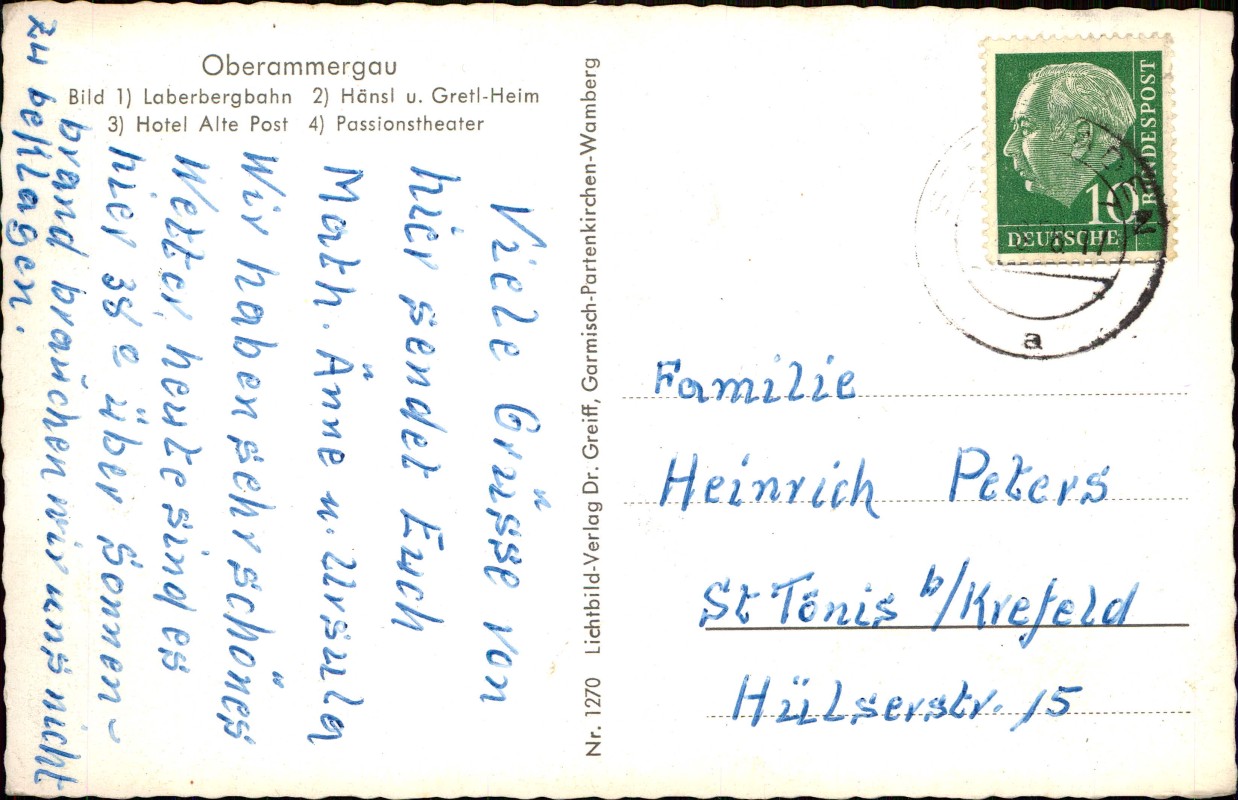 Oberammergau
Bild 1) Laberbergbahn 2) Hänsl u. Gretl-Heim
3) Hotel Alte Post 4) Passionstheater
Viele Grüsse von
hier sendet Euch
Math. Änne u. Ursula
Wir haben sehr schönes
Wetter, heute sind es
hier 38° über Sonnen-
brand brauchen wir uns nicht
zu beklagen.
Nr. 1270 Lichtbild-Verlag Dr. Greiff, Garmisch-Partenkirchen-Wamberg
DEUTSCHE
BUNDESPOST
10
a
Familie
Heinrich Peters
St Tönis b/Krefeld
Hülserstr. 15